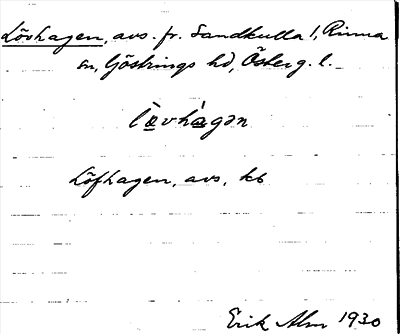 Lövhagen, avs. fr. Sandkulla 1, Rinna
sn, Göstrings hd, Österg. l.
lö̀vhágən
Löfhagen, avs, kb
Erik Alm 1930